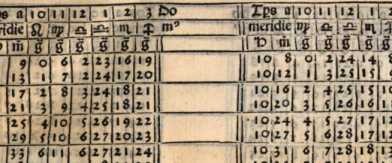 ps a 10 11 12 1 2 3 Do Tps a 10 11 12
ridie ♌ ♍ ♎ ♎ ♏ ♐ meridie ♍ ♎ ♎ ♏
m̄ g̃ g̃ g̃ g̃ g̃ g̃ m̄ g̃ g̃ g̃ g̃
9 0 6 2 23 16 19 10 8 0 2 24 14
13 1 7 2 24 17 20 10 12 3 25 15
17 2 8 3 24 18 21 10 16 2 4 25 15
21 3 9 4 25 18 21 10 20 3 5 26 16
25 4 10 5 26 19 22 10 24 4 5 27 17
29 5 10 6 27 20 23 10 27 5 6 28 17
33 6 11 6 27 21 24 10 31 6 7 28 18